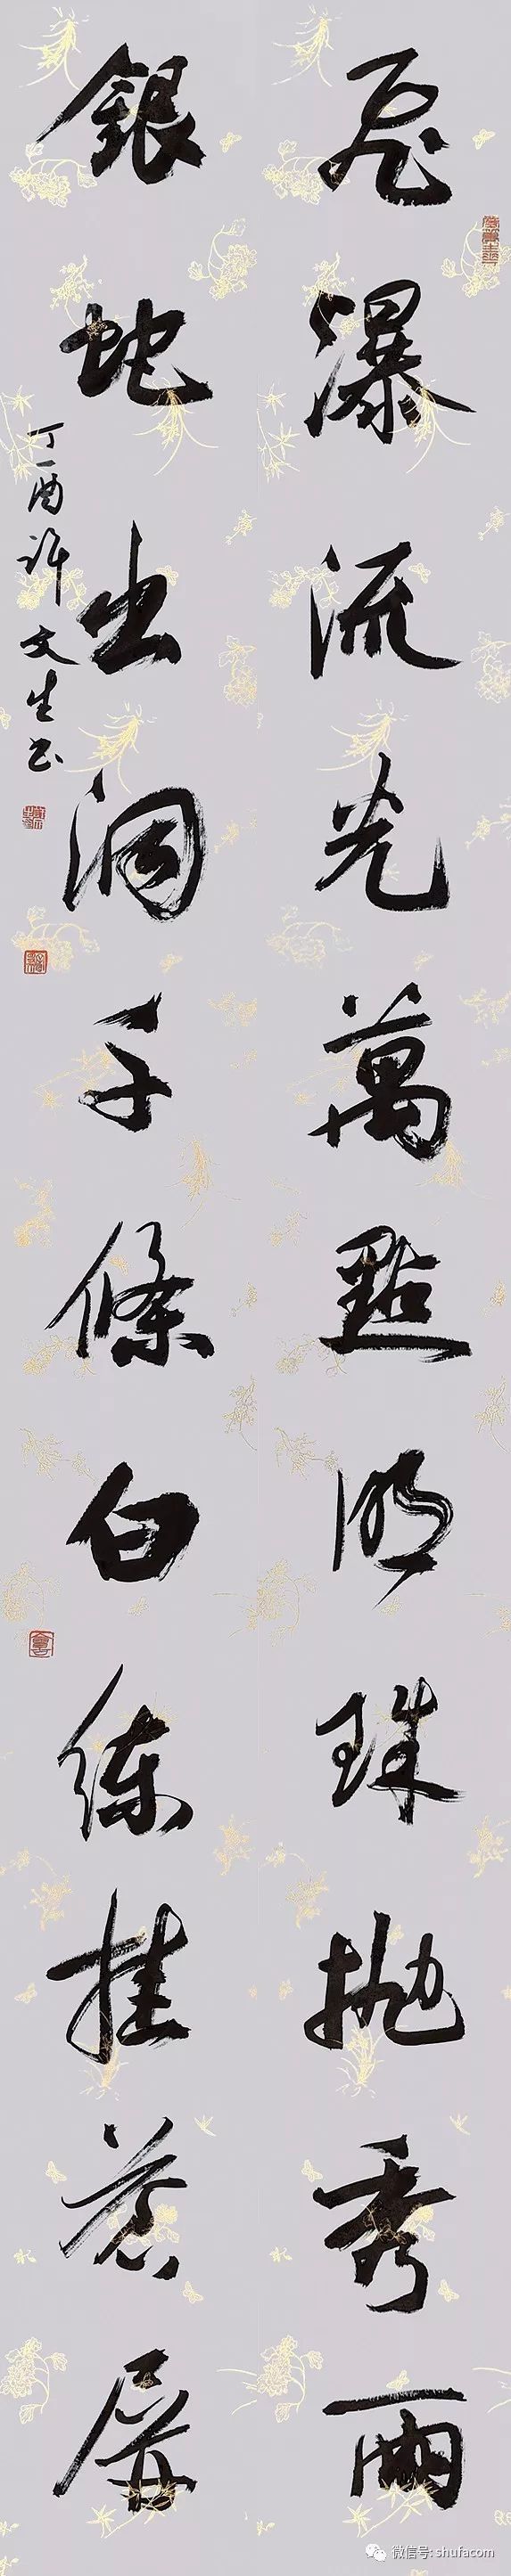 飛瀑流光萬點明珠拋秀雨
銀蛇出洞千條白練挂蒼屏
丁酉許文生書
微信号: shufacom